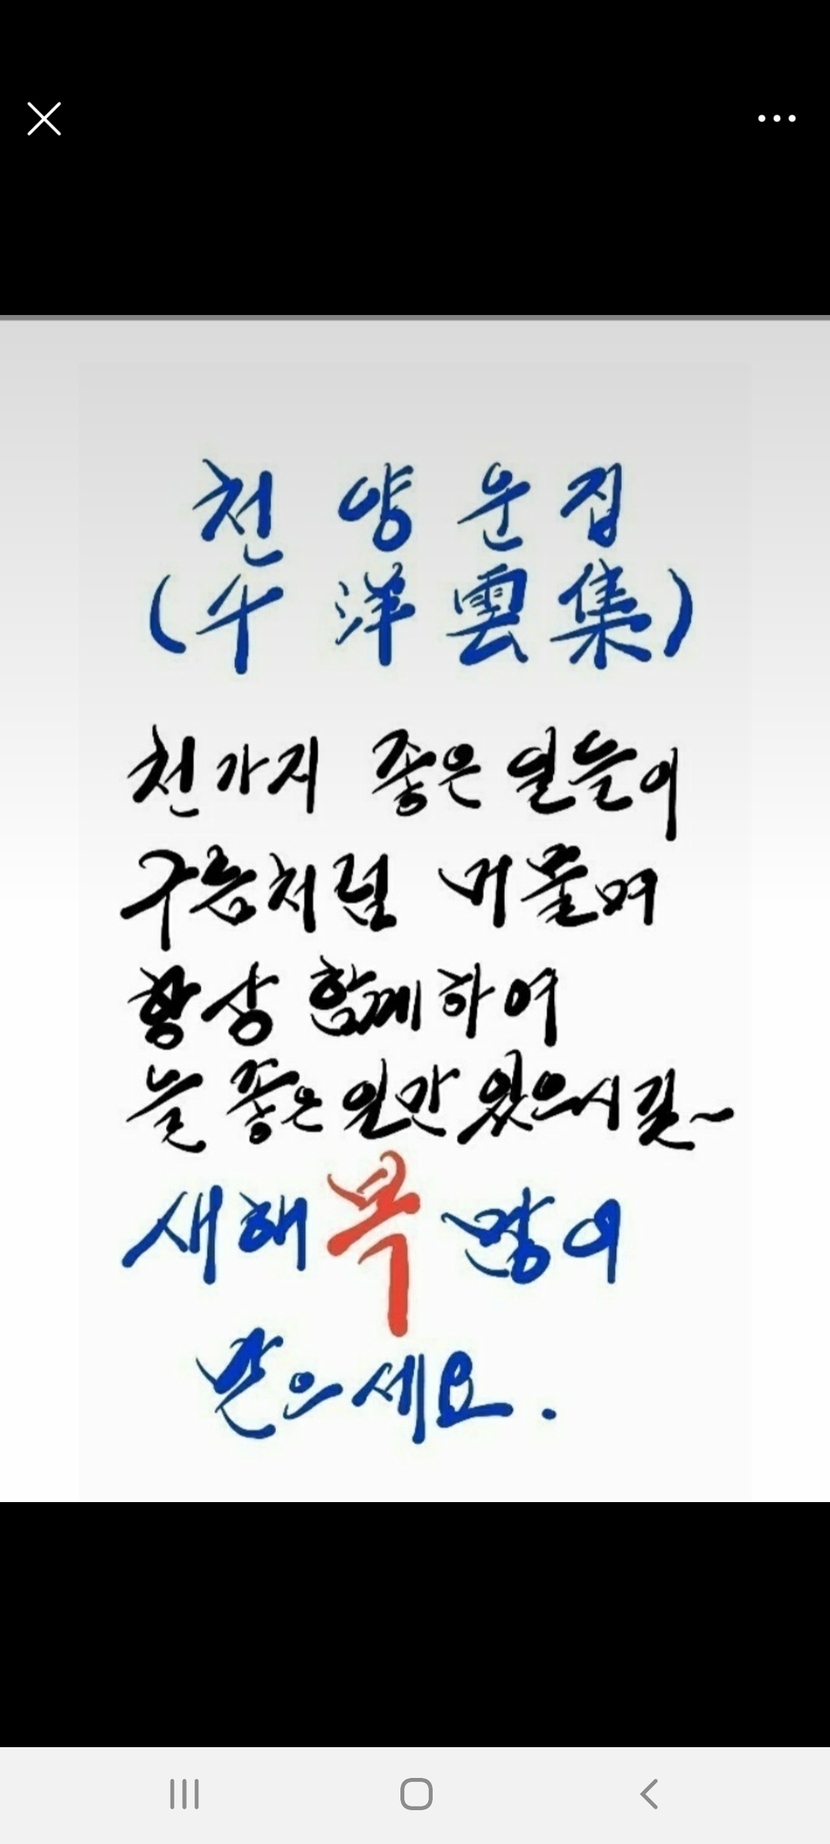 천 양 운 집
(千 洋 雲 集)
천가지 좋은 일들이
구름처럼 머물며
항상 함께하여
늘 좋은 일만 있으시길~
새해 복 많이
받으세요.